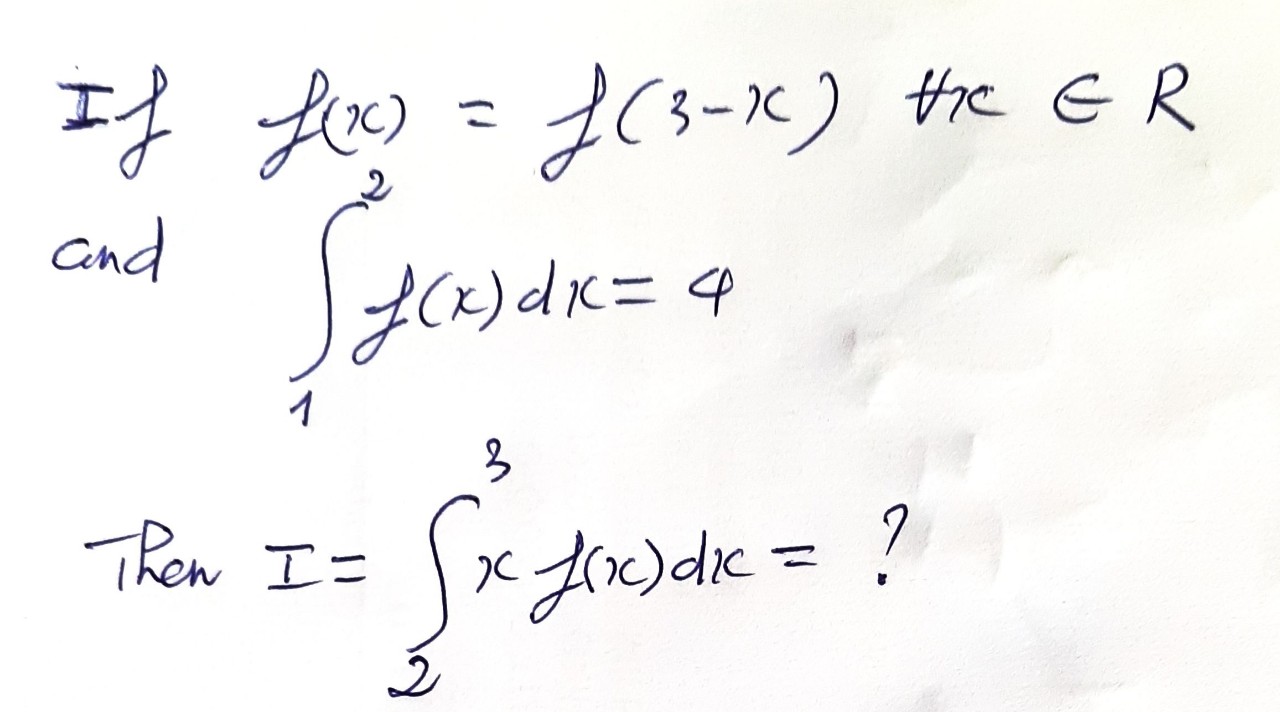 If f(x) = f(3-x) ∀x ∈ R
and ∫₁² f(x)dx = 4
Then I = ∫₂³ x f(x)dx = ?